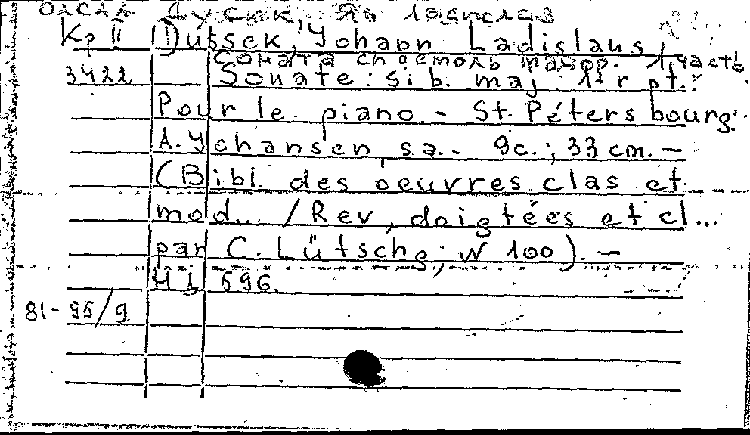 Дусик, Ян Ладислав
Кр II Dussek, Johann Ladislaus,
Соната си бемоль мажор. 1 часть
3422 Sonate: si b. maj. 1-r pt.:
Pour le piano. - St. Pétersbourg:
A. Johansen, s.a. - 9c.; 33 cm. -
(Bibl. des oeuvres clas et
mod... / Rev, doigtées et cl...
par C. Lütschg; N 100). -
Н.д. 596.
81-55/9